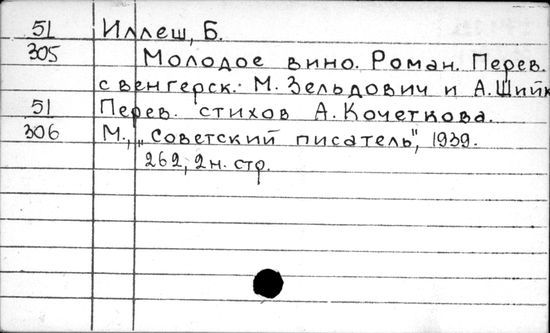 51 Иллеш, Б.
305 Молодое вино. Роман. Перев.
с венгерск.: М. Зельдович и А. Шийк
51 Перев. стихов А. Кочеткова.
306 М., „Советский писатель", 1939.
262, 2 н. стр.